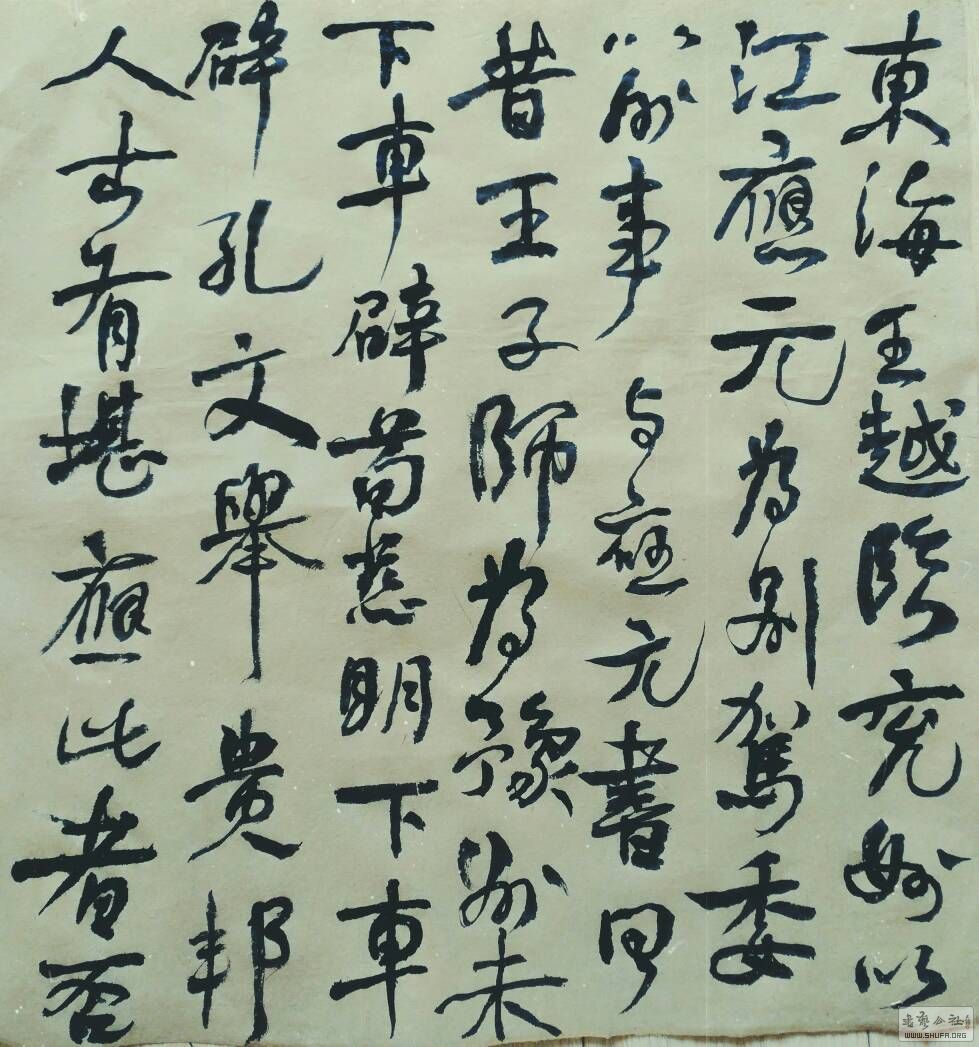 東海王越臨兖州以
江應元為别駕委
以州事与應元書曰
昔王子師為豫州未
下車辟荀慈明下車
辟孔文舉貴邦
人士有堪應此者否
书艺公社
WWW.SHUFA.ORG